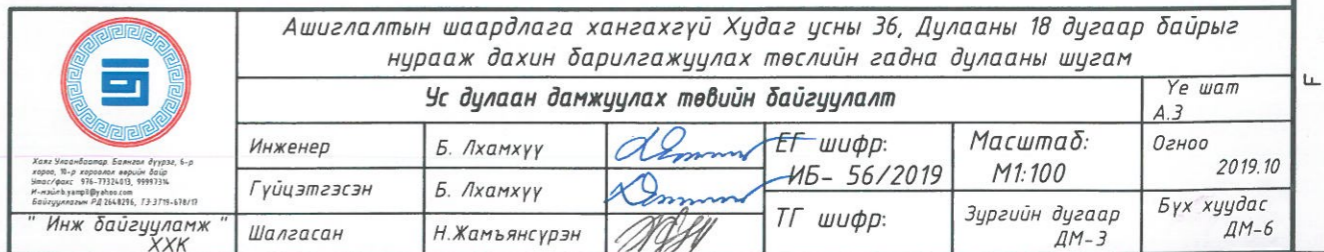 Ашиглалтын шаардлага хангахгүй Худаг усны 36, Дулааны 18 дугаар байрыг
нурааж дахин барилгажуулах төслийн гадна дулааны шугам
Ус дулаан дамжуулах төвийн байгуулалт
Үе шат
А.3
F
Хаяг Улаанбаатар. Баянгол дүүрэг, 6-р
хороо, 10-р хороолол өөрийн байр
Утас/факс: 976-77324013, 99957314
Байгууллагын РД 2648296, ТЗ-3719-678/17
" Инж байгууламж "
ХХК
Инженер
Б. Лхамхүү
ЕГ шифр:
ИБ- 56/2019
Масштаб:
М1:100
Огноо
2019.10
Гүйцэтгэсэн
Б. Лхамхүү
Шалгасан
Н.Жамъянсүрэн
ТГ шифр:
Зургийн дугаар
ДМ-3
Бүх хуудас
ДМ-6